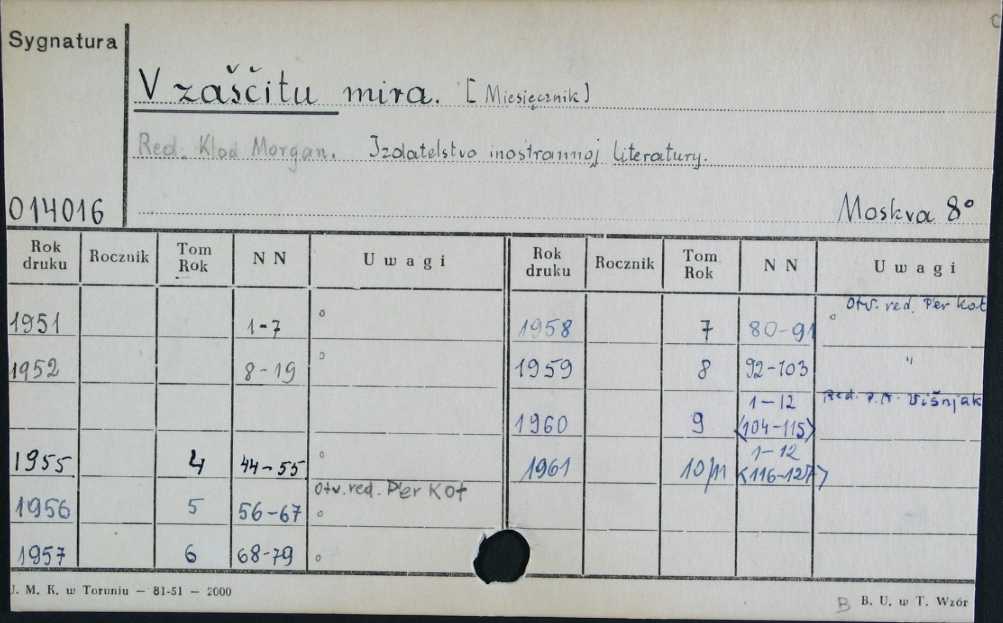 Sygnatura
V zaščitu mira. [Miesięcznik]
Red. Klod Morgan. Izdatelstvo inostrannoj literatury.
014016
Moskva 8°
Rok druku Rocznik Tom Rok N N Uwagi
1951 1-7 °
1952 8-19 °
1955 4 44-55 °
1956 5 56-67 Otv. red. Per Kot °
1957 6 68-79 °
Rok druku Rocznik Tom Rok N N Uwagi
1958 7 80-91 Otv. red. Per Kot °
1959 8 92-103 "
1960 9 1-12 <104-115> Red. Višnjak
1961 10/11 1-12 <116-127>
J. M. K. w Toruniu — 81-51 — 2000
B B. U. w T. Wzór